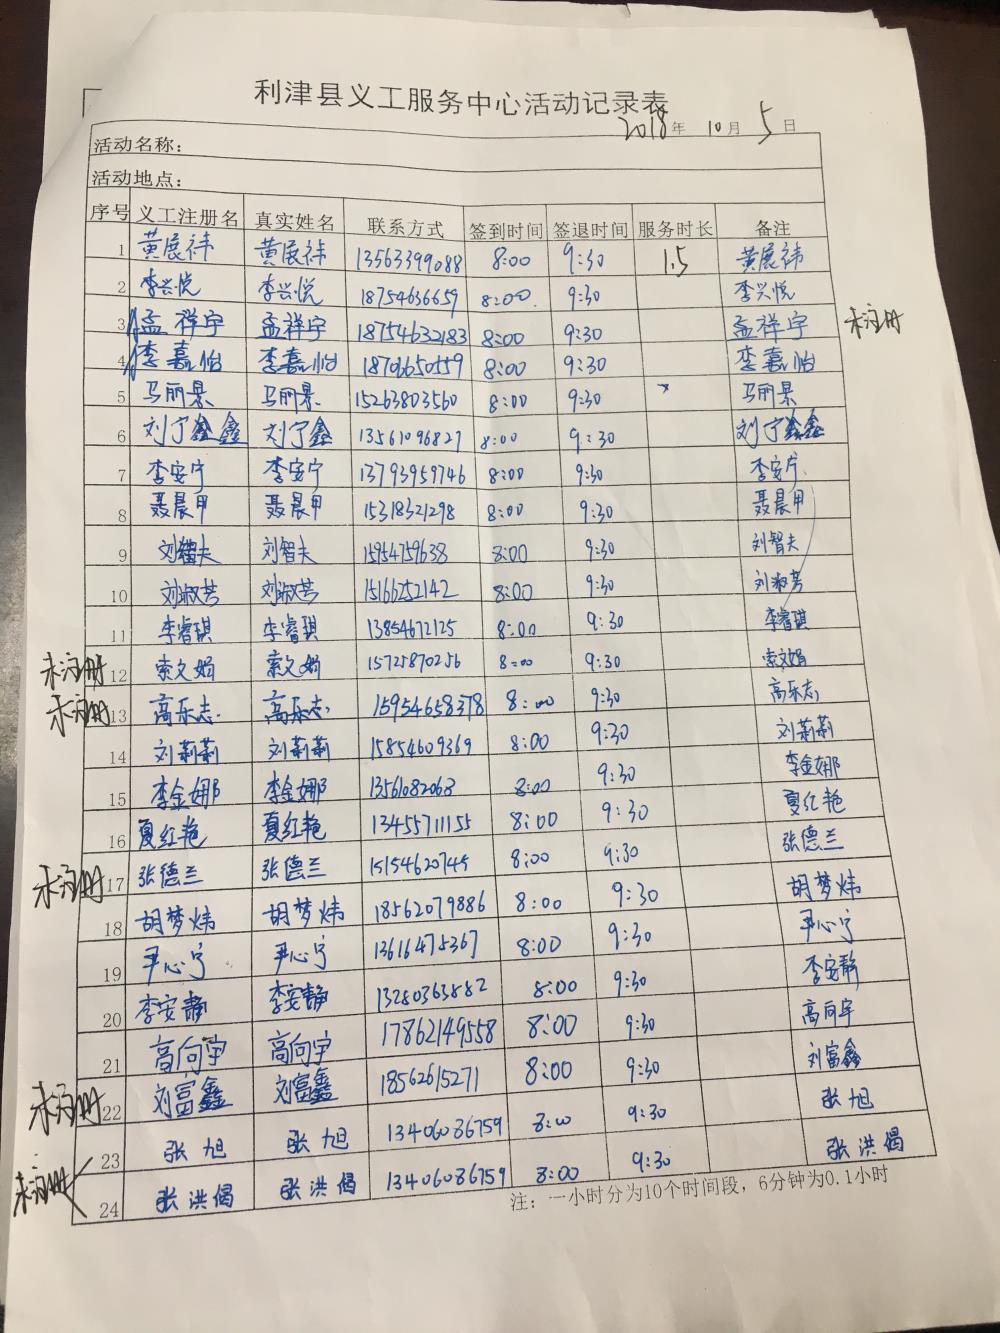 利津县义工服务中心活动记录表
2018年 10月 5日
活动名称：
活动地点：
序号 义工注册名 真实姓名 联系方式 签到时间 签退时间 服务时长 备注
1 黄展祎 黄展祎 13563399088 8:00 9:30 1.5 黄展祎
2 李兴悦 李兴悦 18754636659 8:00 9:30 李兴悦
3 孟祥宇 孟祥宇 18754632183 8:00 9:30 孟祥宇 未注册
4 李嘉怡 李嘉怡 8:00 9:30 李嘉怡
5 马丽景 马丽景 15263803560 8:00 9:30 马丽景
6 刘宁鑫鑫 刘宁鑫 13561096827 8:00 9:30 刘宁鑫鑫
7 李安宁 李安宁 13793959746 8:00 9:30 李安宁
8 聂晨甲 聂晨甲 15318321298 8:00 9:30 聂晨甲
9 刘智夫 刘智夫 15954759638 8:00 9:30 刘智夫
10 刘淑芳 刘淑芳 15166252142 8:00 9:30 刘淑芳
11 李睿琪 李睿琪 13854672125 8:00 9:30 李睿琪
未注册 12 索文娟 索文娟 15725870256 8:00 9:30 索文娟
未注册 13 高乐志 高乐志 15954658378 8:00 9:30 高乐志
14 刘莉莉 刘莉莉 15854609369 8:00 9:30 刘莉莉
15 李金娜 李金娜 1356082063 8:00 9:30 李金娜
16 夏红艳 夏红艳 13455711155 8:00 9:30 夏红艳
未注册 17 张德兰 张德兰 15154620745 8:00 9:30 张德兰
18 胡梦炜 胡梦炜 18562079886 8:00 9:30 胡梦炜
19 尹心宁 尹心宁 13616475367 8:00 9:30 尹心宁
20 李安静 李安静 13280363882 8:00 9:30 李安静
21 高向宇 高向宇 17862149558 8:00 9:30 高向宇
未注册 22 刘富鑫 刘富鑫 18562615271 8:00 9:30 刘富鑫
23 张旭 张旭 13406086759 8:00 9:30 张旭
未注册 24 张洪偈 张洪偈 13406086759 8:00 9:30 张洪偈
注：一小时分为10个时间段，6分钟为0.1小时